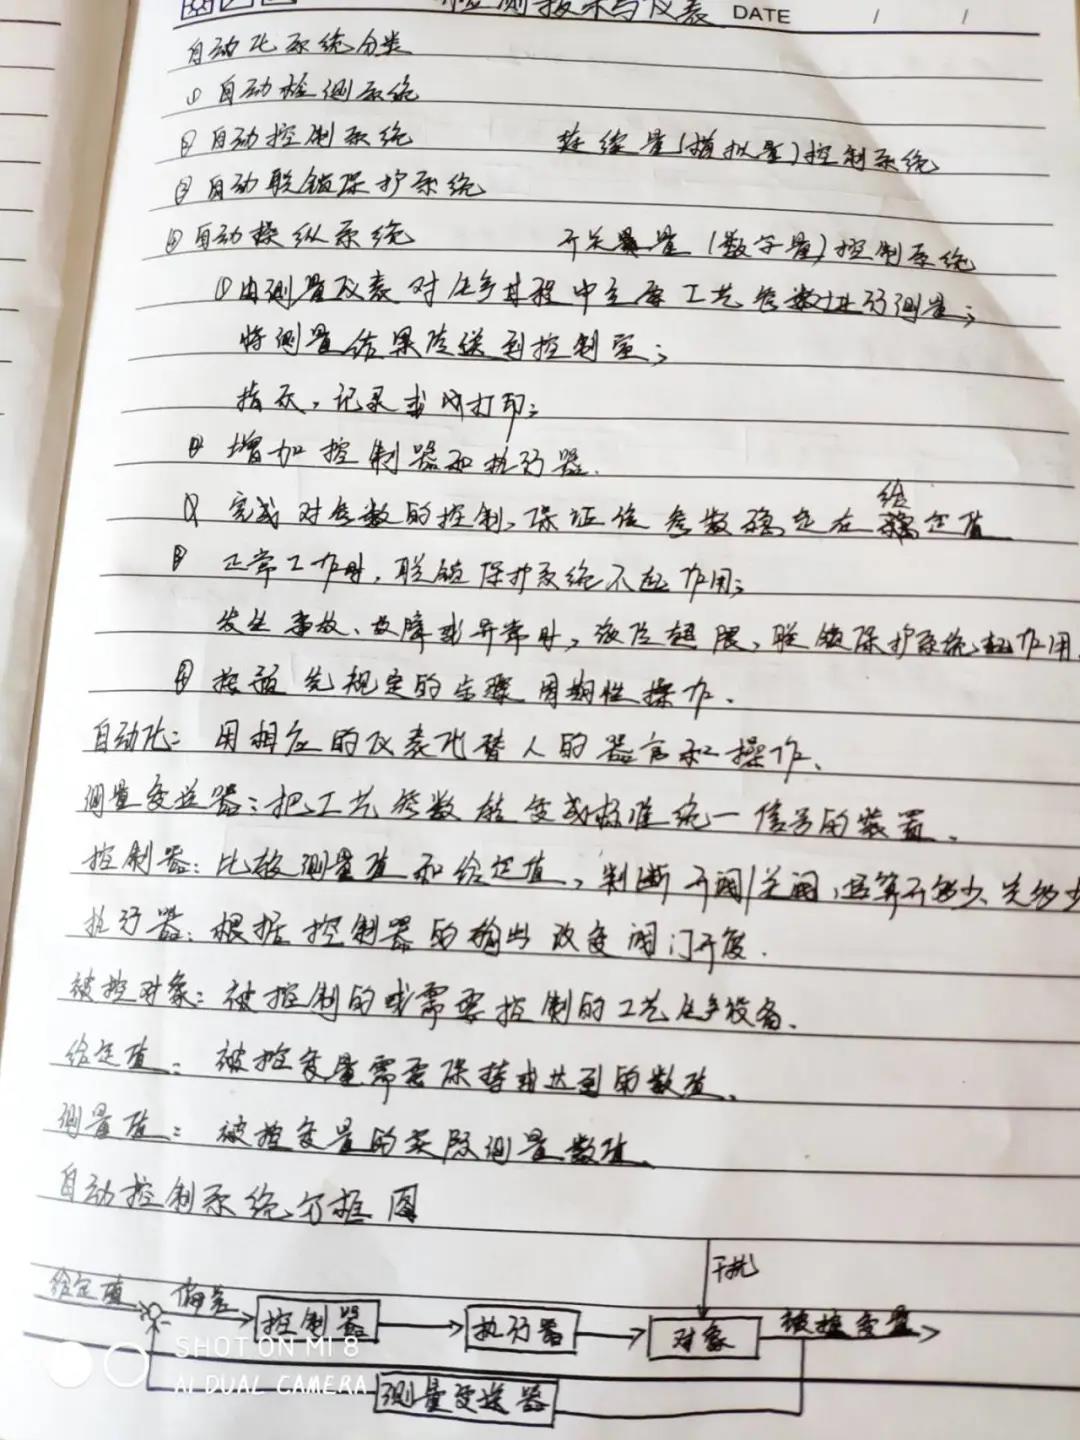 检测技术与仪表 DATE / /
自动化系统分类
① 自动检测系统
② 自动控制系统 连续量(模拟量)控制系统
③ 自动联锁保护系统
④ 自动操纵系统 开关量(数字量)控制系统
①由测量仪表对生产过程中主要工艺参数进行测量;
将测量结果传送到控制室;
指示,记录或打印;
增加控制器和执行器.
完成对参数的控制,保证参数稳定在给定值
③ 正常工作时,联锁保护系统不起作用;
发生事故、故障或异常时,液位超限,联锁保护系统起作用.
④ 按预先规定的步骤周期性操作.
自动化: 用相应的仪表代替人的器官和操作.
测量变送器:把工艺参数转变成标准统一信号的装置.
控制器:比较测量值和给定值,判断开阀/关阀,运算开多少,关多少
执行器:根据控制器的输出改变阀门开度.
被控对象:被控制的或需要控制的工艺生产设备.
给定值: 被控变量需要保持或达到的数值.
测量值: 被控变量的实际测量数值.
自动控制系统方框图
干扰
给定值 偏差 控制器 执行器 对象 被控变量
SHOT ON MI 8
AI DUAL CAMERA
测量变送器